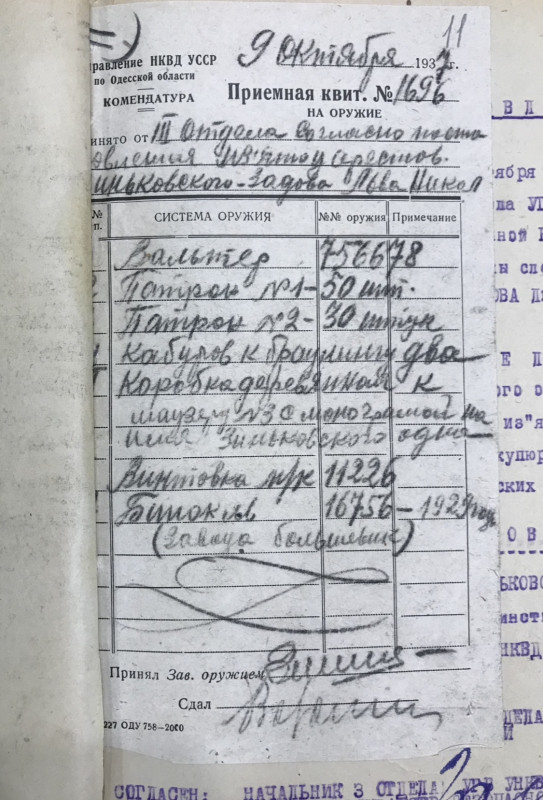 11
9 Октября 1937 г.
равление НКВД УССР
по Одесской области
КОМЕНДАТУРА
Приемная квит. № 1696
НА ОРУЖИЕ
инято от III Отдела Согласно поста
овления арестов.
иньковского-Задова Льва Никол
№ п. СИСТЕМА ОРУЖИЯ №№ оружия Примечание
Вальтер 756678
Патрон №1- 50 шт.
Патрон №2- 30 штук
кабулов к браунингу два
Коробка деревянная к
маузеру №3 с монограмой на
имя Зиньковского одна
Винтовка м/к 11226
Бинокль 16756 - 1929 год
(Завода большевик)
Принял Зав. оружием
Сдал
227 ОДУ 758-2000
В Д
ября
ла У
ной
ы сле
ОВА Д
Е Л
ого о
из"я
купюр
ских
О В
ЬКОВС
инст
НКВД
ДЕЛА
СОГЛАСЕН: НАЧАЛЬНИК 3 ОТДЕЛА УГБ УНКВ